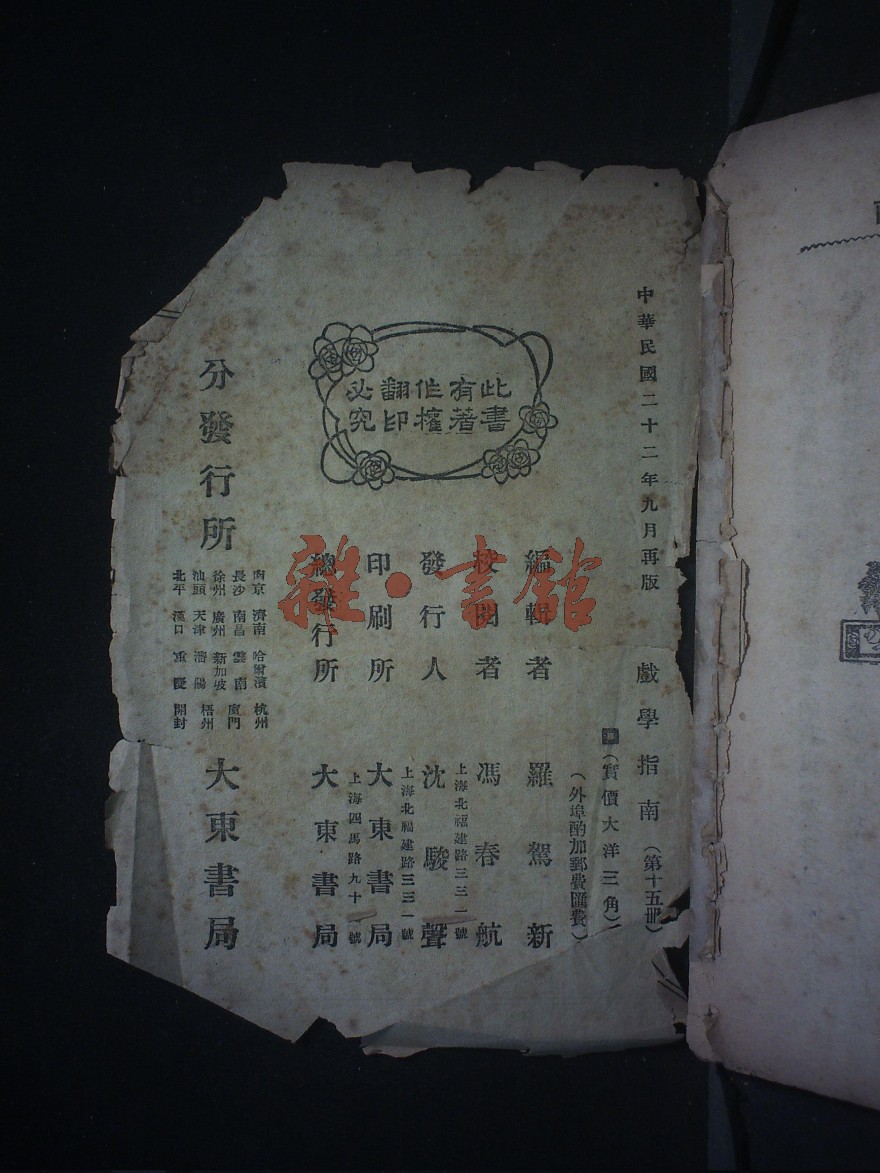 中華民國二十二年九月再版
戲學指南（第十五冊）
（實價大洋三角）
（外埠酌加郵費匯費）
此書
有著
作權
翻印
必究
編輯者 羅駕新
校閱者 馮春航
上海北福建路三三一號
發行人 沈駿聲
上海北福建路三三一號
印刷所 大東書局
上海四馬路九十號
總發行所 大東書局
南京 濟南 哈爾濱 杭州
長沙 南昌 雲南 廈門
徐州 廣州 新加坡 梧州
汕頭 天津 瀋陽
北平 漢口 重慶 開封
分發行所 大東書局
雜·書館